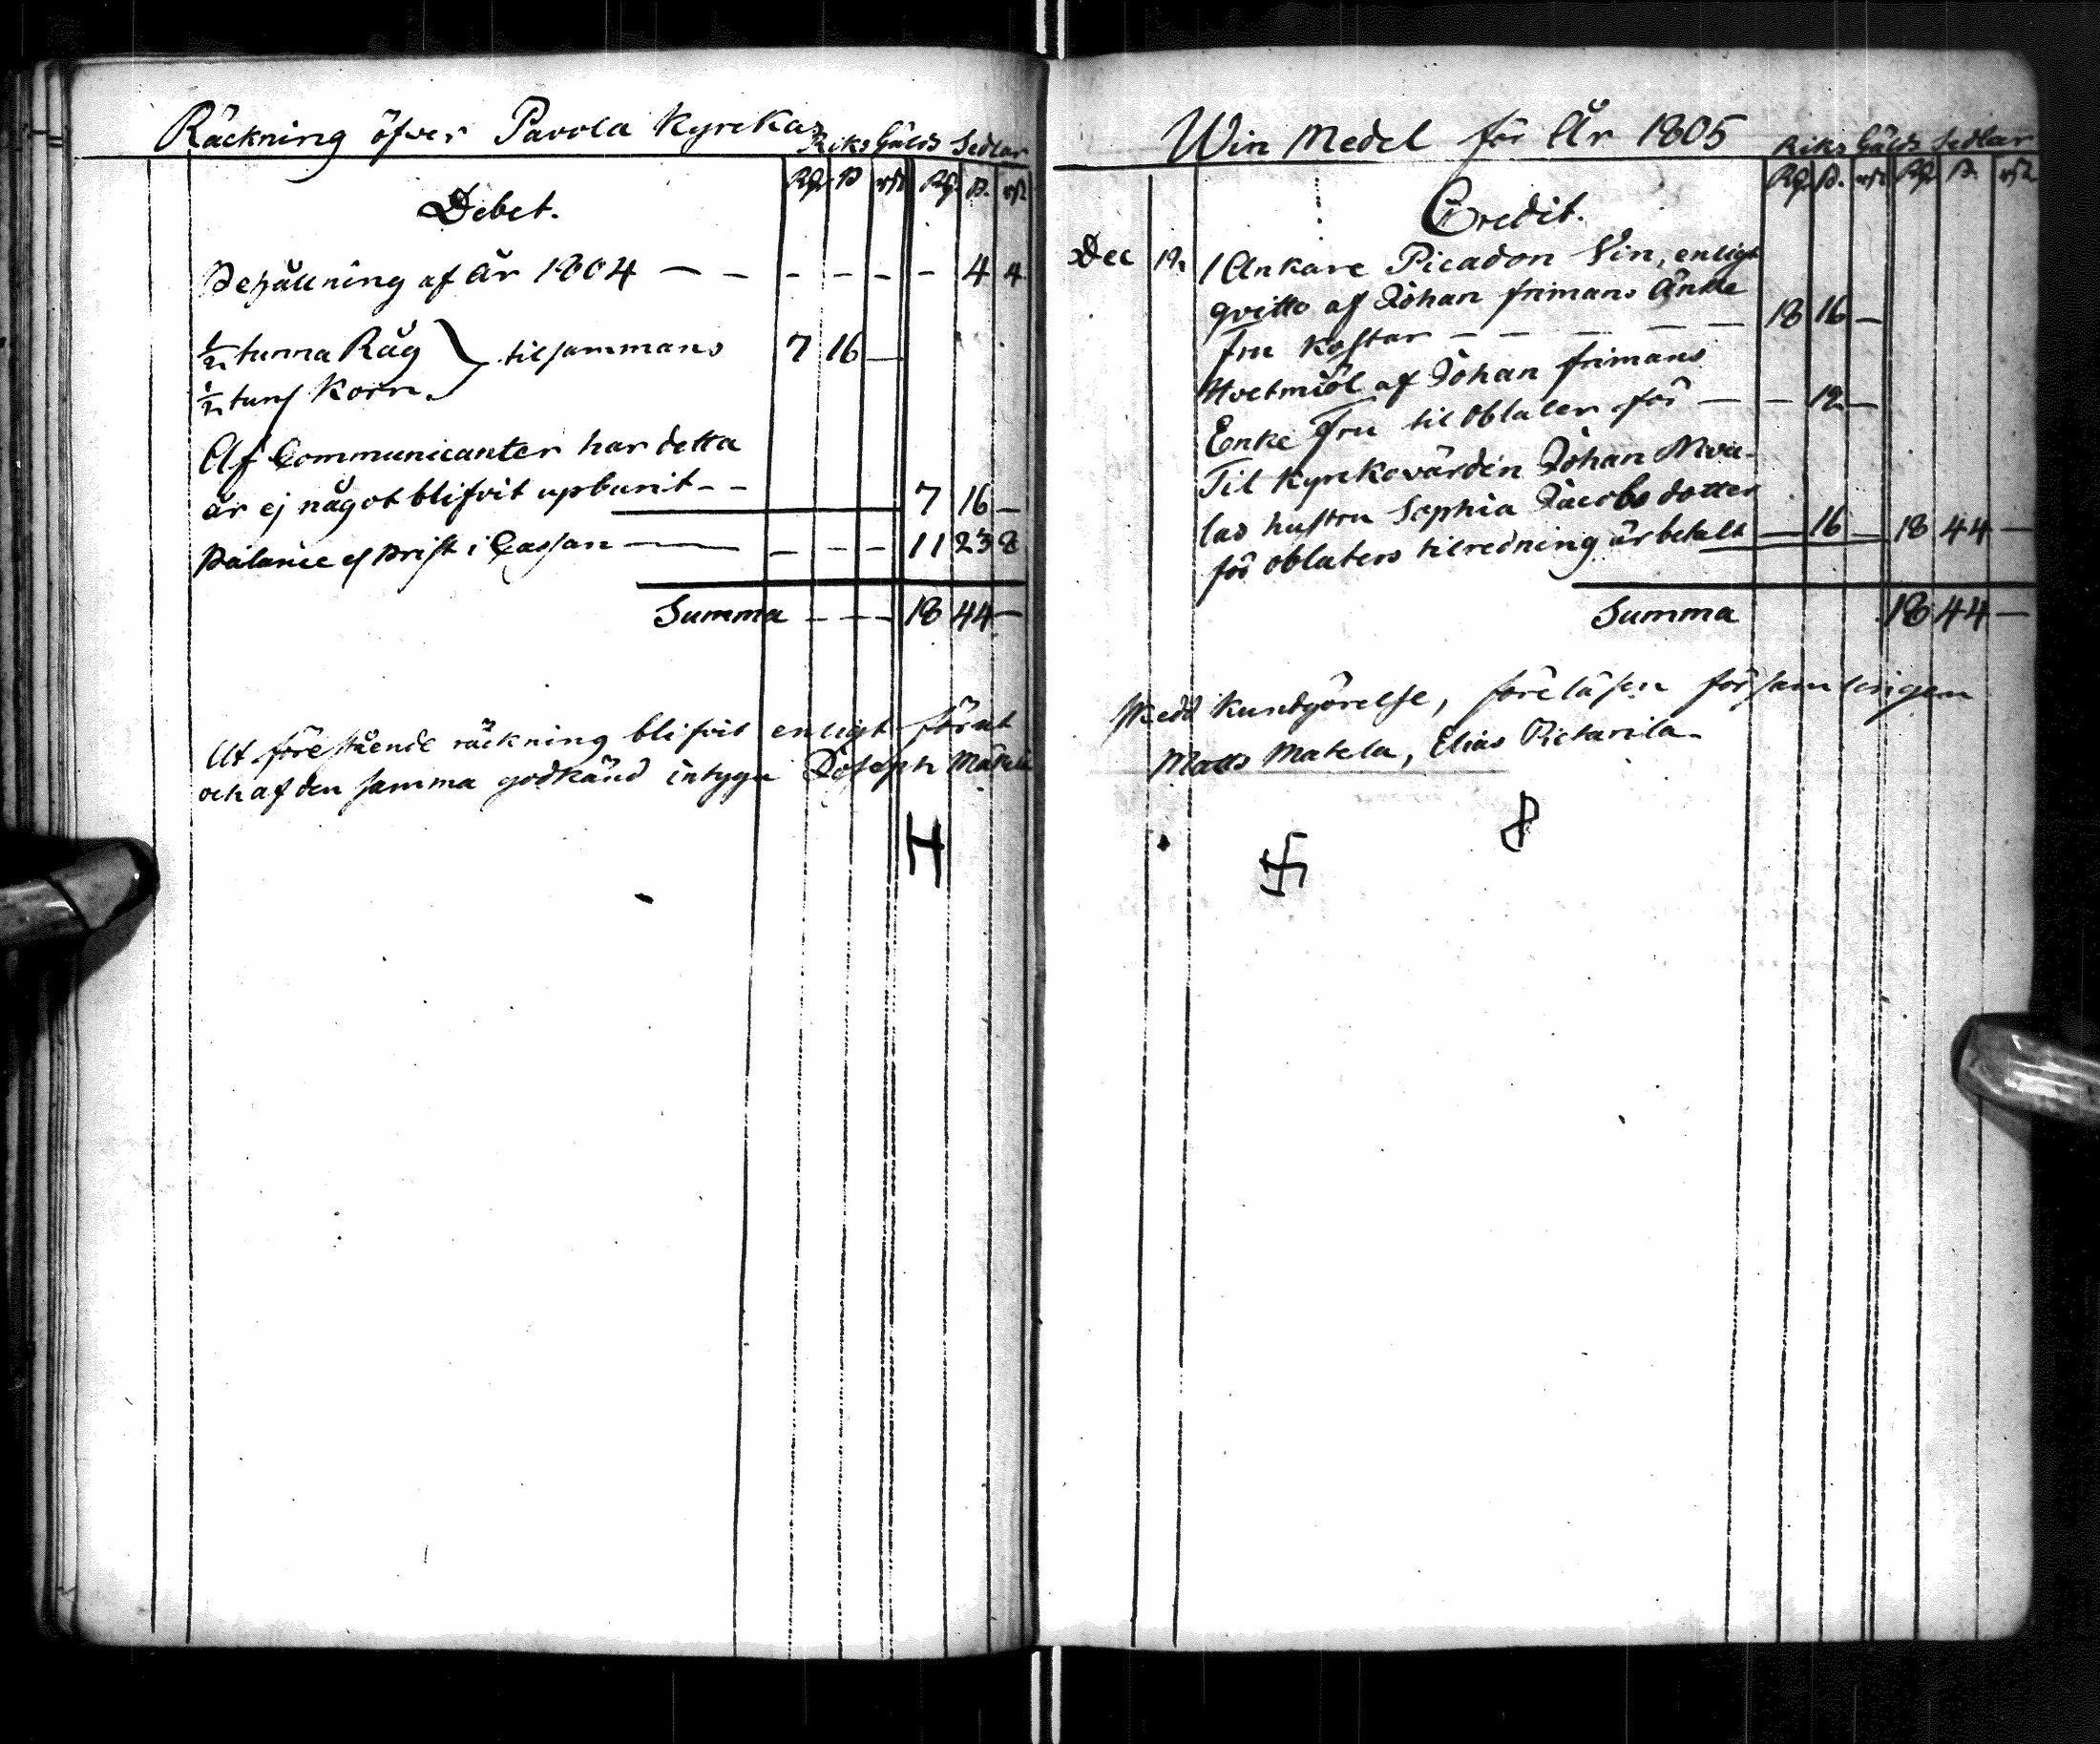 Räckning öfver Pavola Kyrckas
Riks Gälds Sedlar
Debet.
Behållning af år 1804 — — — — — — 4 4
1/2 tunna Råg } tilsammans 7 16 —
1/2 tun Korn
Af Communicanter har detta
år ej något blifvit upburit - - 7 16 —
Balance brist i Cassan — — — — 11 23 8
Summa - - - 18 44 —
At förestående räckning blifvit enligt förut
och af den samma godkänd intyga Joseph
H
Win Medel för År 1805
Riks Gälds Sedlar
Credit.
Dec 12. 1 Ankare Picadon Vin, enligt
qvitto af Johan frimans Änke
Fru kostar — — — — — 18 16 —
Hvetmiöl af Johan frimans
Enke Fru til oblater för — — 12 —
Til Kyrkovärden Johan
las hustru Sophia Jacobs dotter
för oblaters tilredning är betalt — 16 — 18 44 —
Summa 18 44 —
Kundgörelse, föreläsen församlingen
Matts Matela, Elias
卐 8